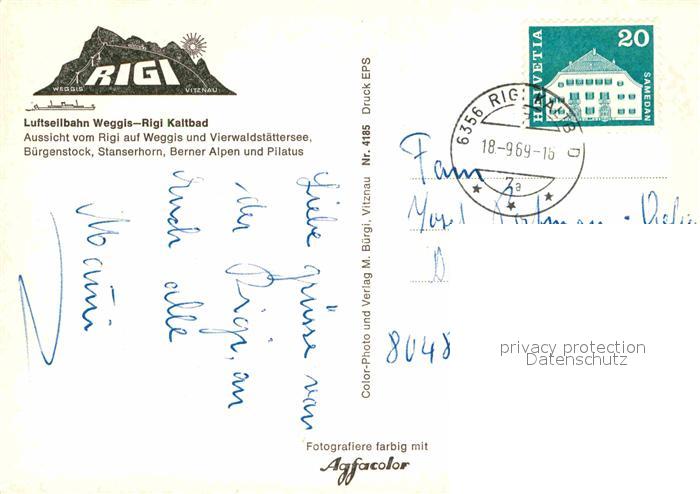 RIGI
WEGGIS VITZNAU
Luftseilbahn Weggis–Rigi Kaltbad
Aussicht vom Rigi auf Weggis und Vierwaldstättersee,
Bürgenstock, Stanserhorn, Berner Alpen und Pilatus
Liebe grüsse von
der Rigi, an
Euch alle
Color-Photo und Verlag M. Bürgi, Vitznau Nr. 4185 Druck EPS
HELVETIA
20
SAMEDAN
6356 RIGI KALTBAD
18.-9.69-15
Fam
8048
privacy protection
Datenschutz
Fotografiere farbig mit
Agfacolor